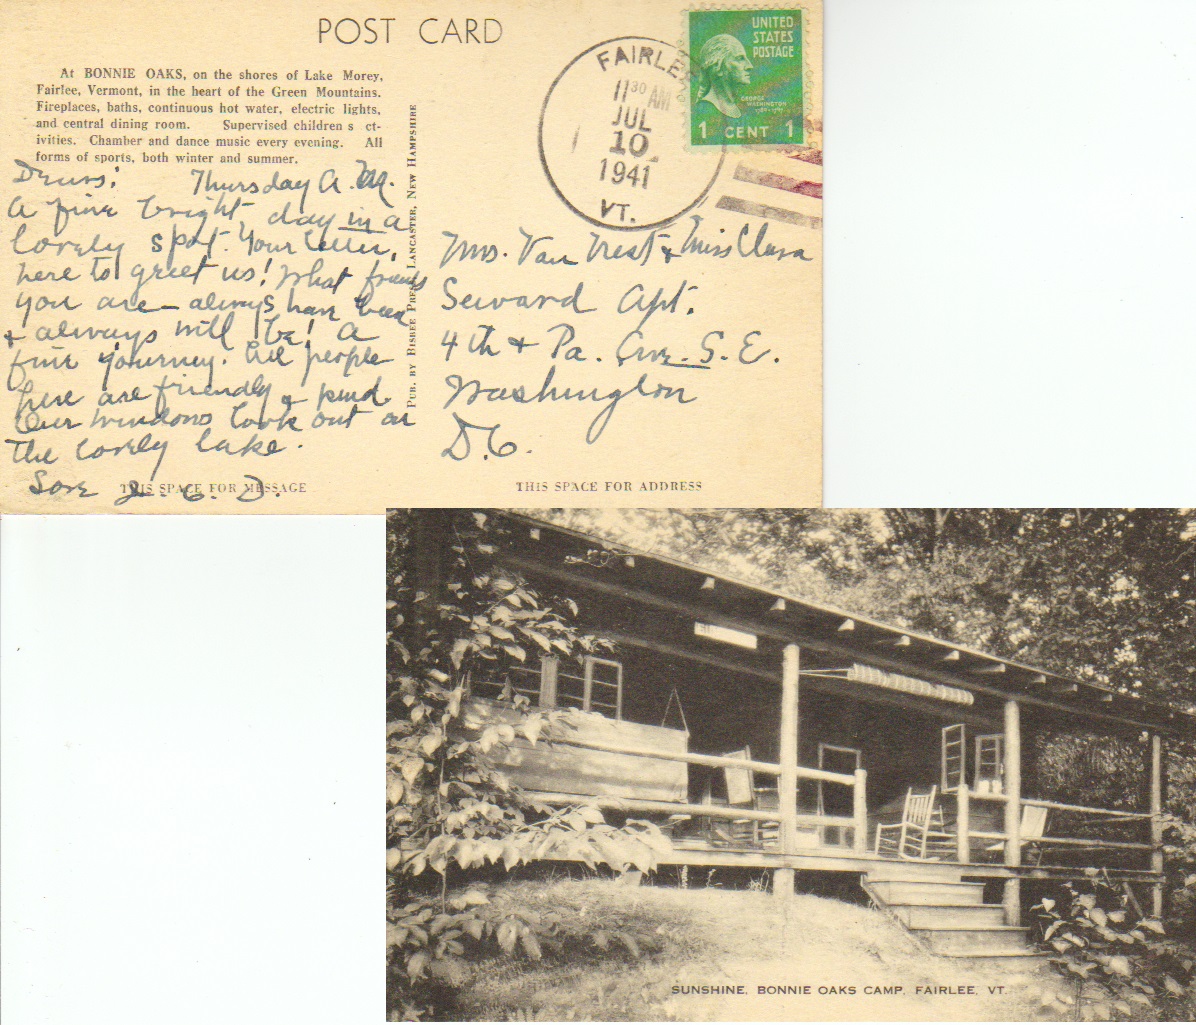 POST CARD
At BONNIE OAKS, on the shores of Lake Morey,
Fairlee, Vermont, in the heart of the Green Mountains.
Fireplaces, baths, continuous hot water, electric lights,
and central dining room. Supervised children s ct-
ivities. Chamber and dance music every evening. All
forms of sports, both winter and summer.
PUB. BY BISBEE PRESS, LANCASTER, NEW HAMPSHIRE
FAIRLEE
11 30 AM
JUL
10
1941
VT.
UNITED
STATES
POSTAGE
GEORGE
WASHINGTON
1789-1797
1 CENT 1
Dears: Thursday A.M.
A fine bright day in a
lovely spot. Your letter,
here to greet us! What friends
you are – always have been
+ always will be! A
fine journey. All people
here are friendly & kind.
Our windows look out on
the lovely lake.
Love
THIS SPACE FOR MESSAGE
Mrs. Van & Miss Clara
Seward Apt.
4th + Pa. Ave. S.E.
Washington
D.C.
THIS SPACE FOR ADDRESS
SUNSHINE, BONNIE OAKS CAMP, FAIRLEE, VT.